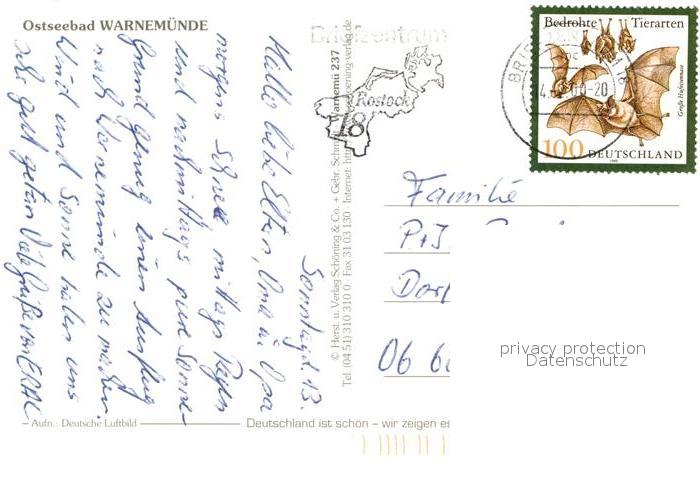 Ostseebad WARNEMÜNDE
Sonntag d. 13.
Hallo liebe Eltern, Oma u. Opa
morgens Schnee, mittags Regen
und nachmittags pure Sonne -
Grund genug einen Ausflug
nach Warnemünde zu machen.
Wind und Sonne haben uns
sehr gut getan Viele Grüße von
© Herst. u. Verlag Schöning & Co. + Gebr. Schmidt
Tel. (04 51) 310 310 0 · Fax 31 03 130 Internet:
Warnemü 237
Aufn.: Deutsche Luftbild
Deutschland ist schön – wir zeigen es
Briefzentrum
Rostock
18
Bedrohte Tierarten
Große Hufeisennase
100 DEUTSCHLAND
Familie
P+J.
Dorf
06
privacy protection
Datenschutz